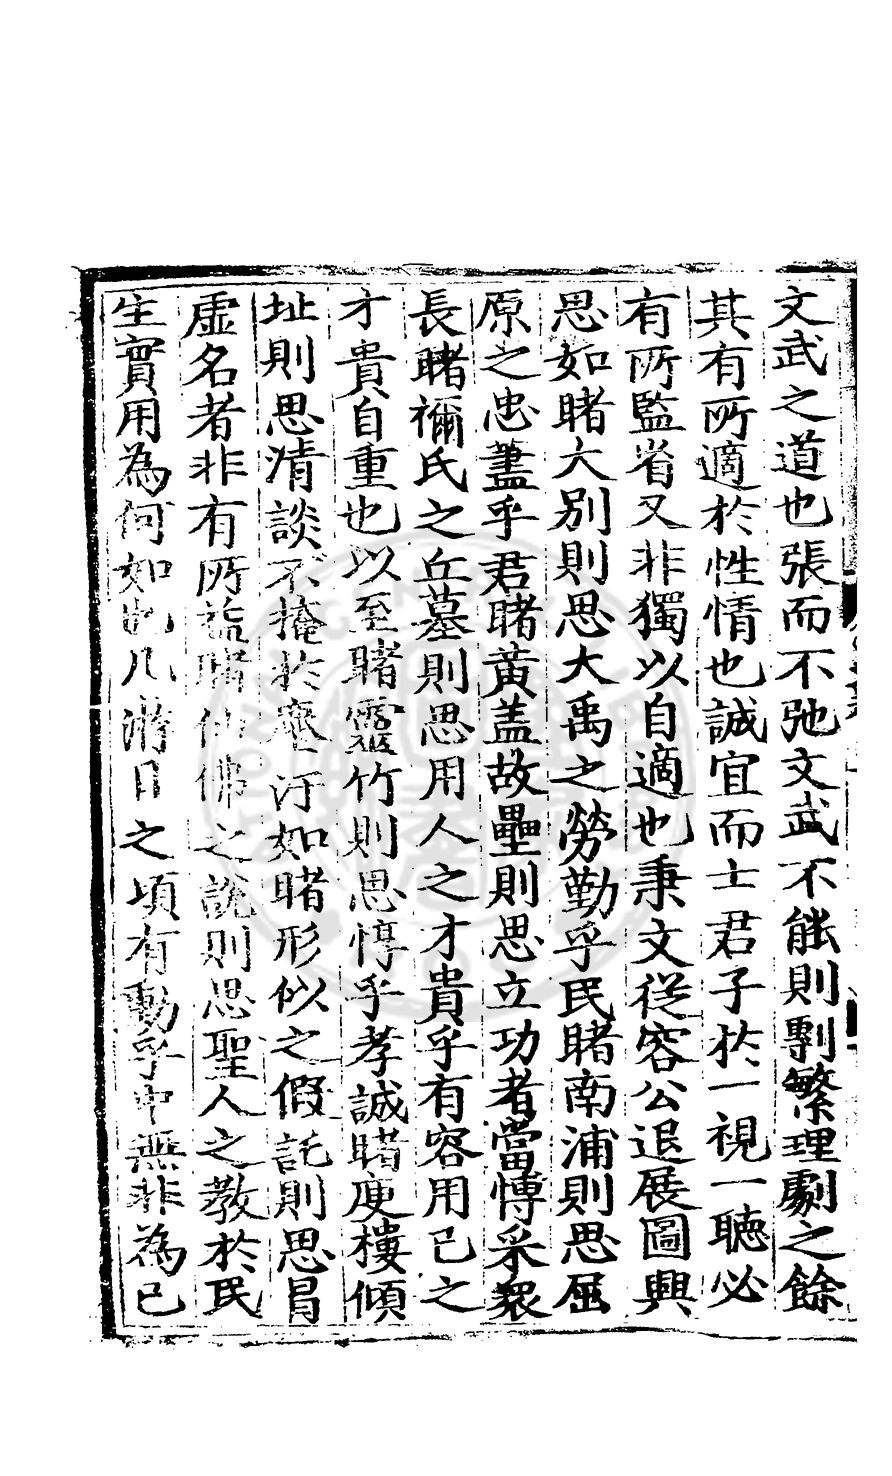 文武之道也張而不弛文武不能則剸繁理劇之餘
其有所適於性情也誠宜而士君子於一視一聽必
有所監省又非獨以自適也秉文從容公退展圖興
思如睹大別則思大禹之勞勤乎民睹南浦則思屈
原之忠藎乎君睹黃盖故壘則思立功者當愽采衆
長睹禰氏之丘墓則思用人之才貴乎有容用己之
才貴自重也以至睹靈竹則思惇乎孝誠睹庾樓傾
址則思清談不掩於塵汙如睹形似之假託則思冐
虛名者非有所益睹仙佛之說則思聖人之教於民
生實用為何如此凡游目之頃有動乎中無非為己